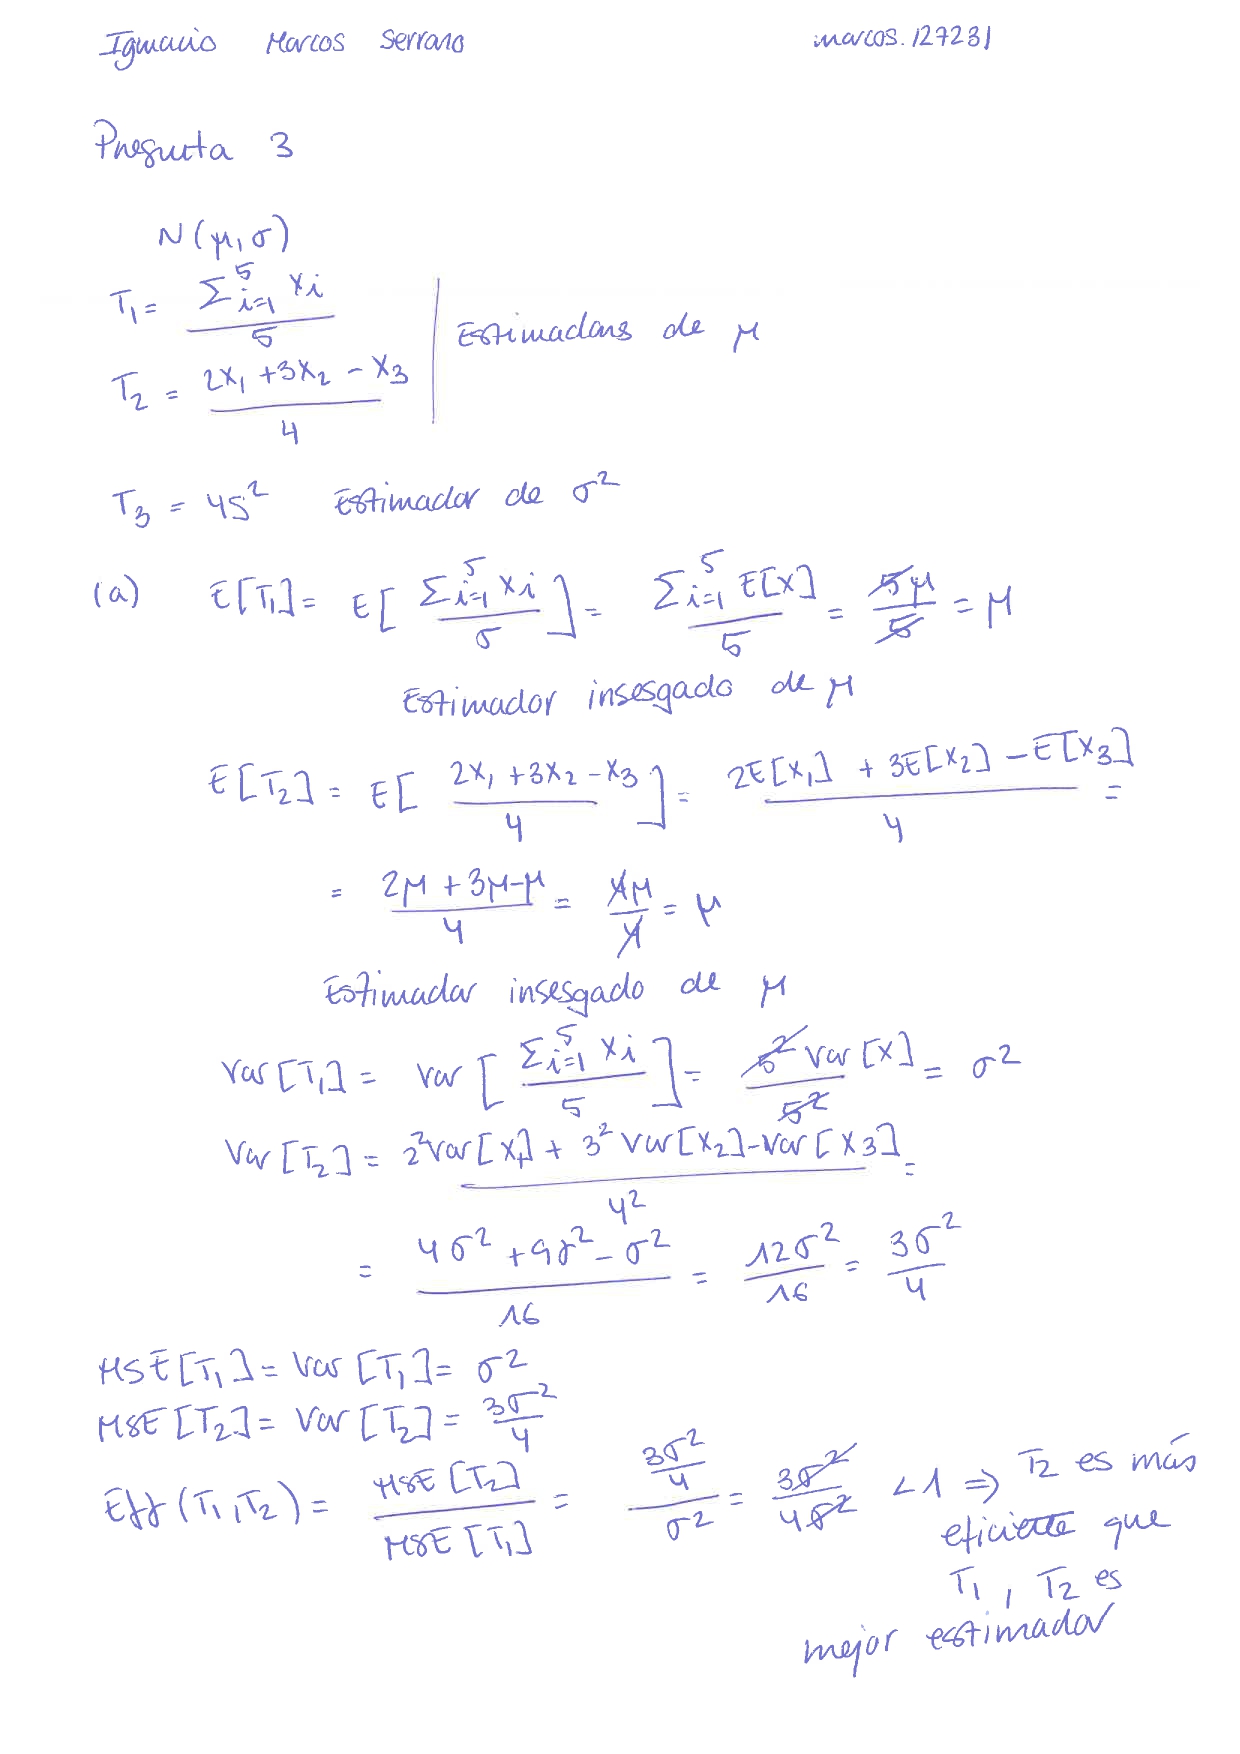 Ignacio Marcos Serrano marcos.127231
Pregunta 3
N(μ,σ)
T₁ = Σ⁵ᵢ₌₁ xi / 5
T₂ = 2x₁ + 3x₂ - x₃ / 4
Estimadores de μ
T₃ = 4S² Estimador de σ²
(a) E[T₁] = E[Σ⁵ᵢ₌₁ xi / 5] = Σ⁵ᵢ₌₁ E[x] / 5 = 5μ / 5 = μ
Estimador insesgado de μ
E[T₂] = E[2x₁ + 3x₂ - x₃ / 4] = 2E[x₁] + 3E[x₂] - E[x₃] / 4 =
= 2μ + 3μ - μ / 4 = 4μ / 4 = μ
Estimador insesgado de μ
Var[T₁] = Var[Σ⁵ᵢ₌₁ xi / 5] = 5² Var[x] / 5² = σ²
Var[T₂] = 2² Var[x₁] + 3² Var[x₂] - Var[x₃] / 4² =
= 4σ² + 9σ² - σ² / 16 = 12σ² / 16 = 3σ² / 4
MSE[T₁] = Var[T₁] = σ²
MSE[T₂] = Var[T₂] = 3σ² / 4
Eff(T₁,T₂) = MSE[T₂] / MSE[T₁] = 3σ²/4 / σ² = 3σ² / 4σ² < 1 ⇒ T₂ es más
eficiente que
T₁, T₂ es
mejor estimador